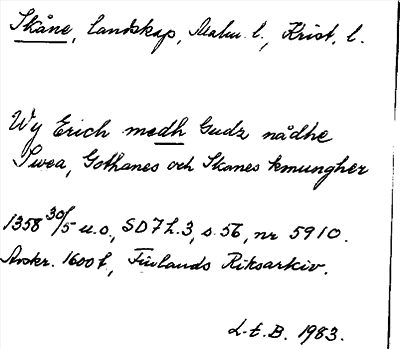 Skåne, landskap, Malm. l., Krist. l.
Wy Erich medh Gudz nådhe
Swea, Gothanes och Skanes konungher
1358 30/5 u.o., SD 7 h.3, s. 56, nr 5910.
Avskr. 1600 t, Finlands Riksarkiv.
L.-E. B. 1983.